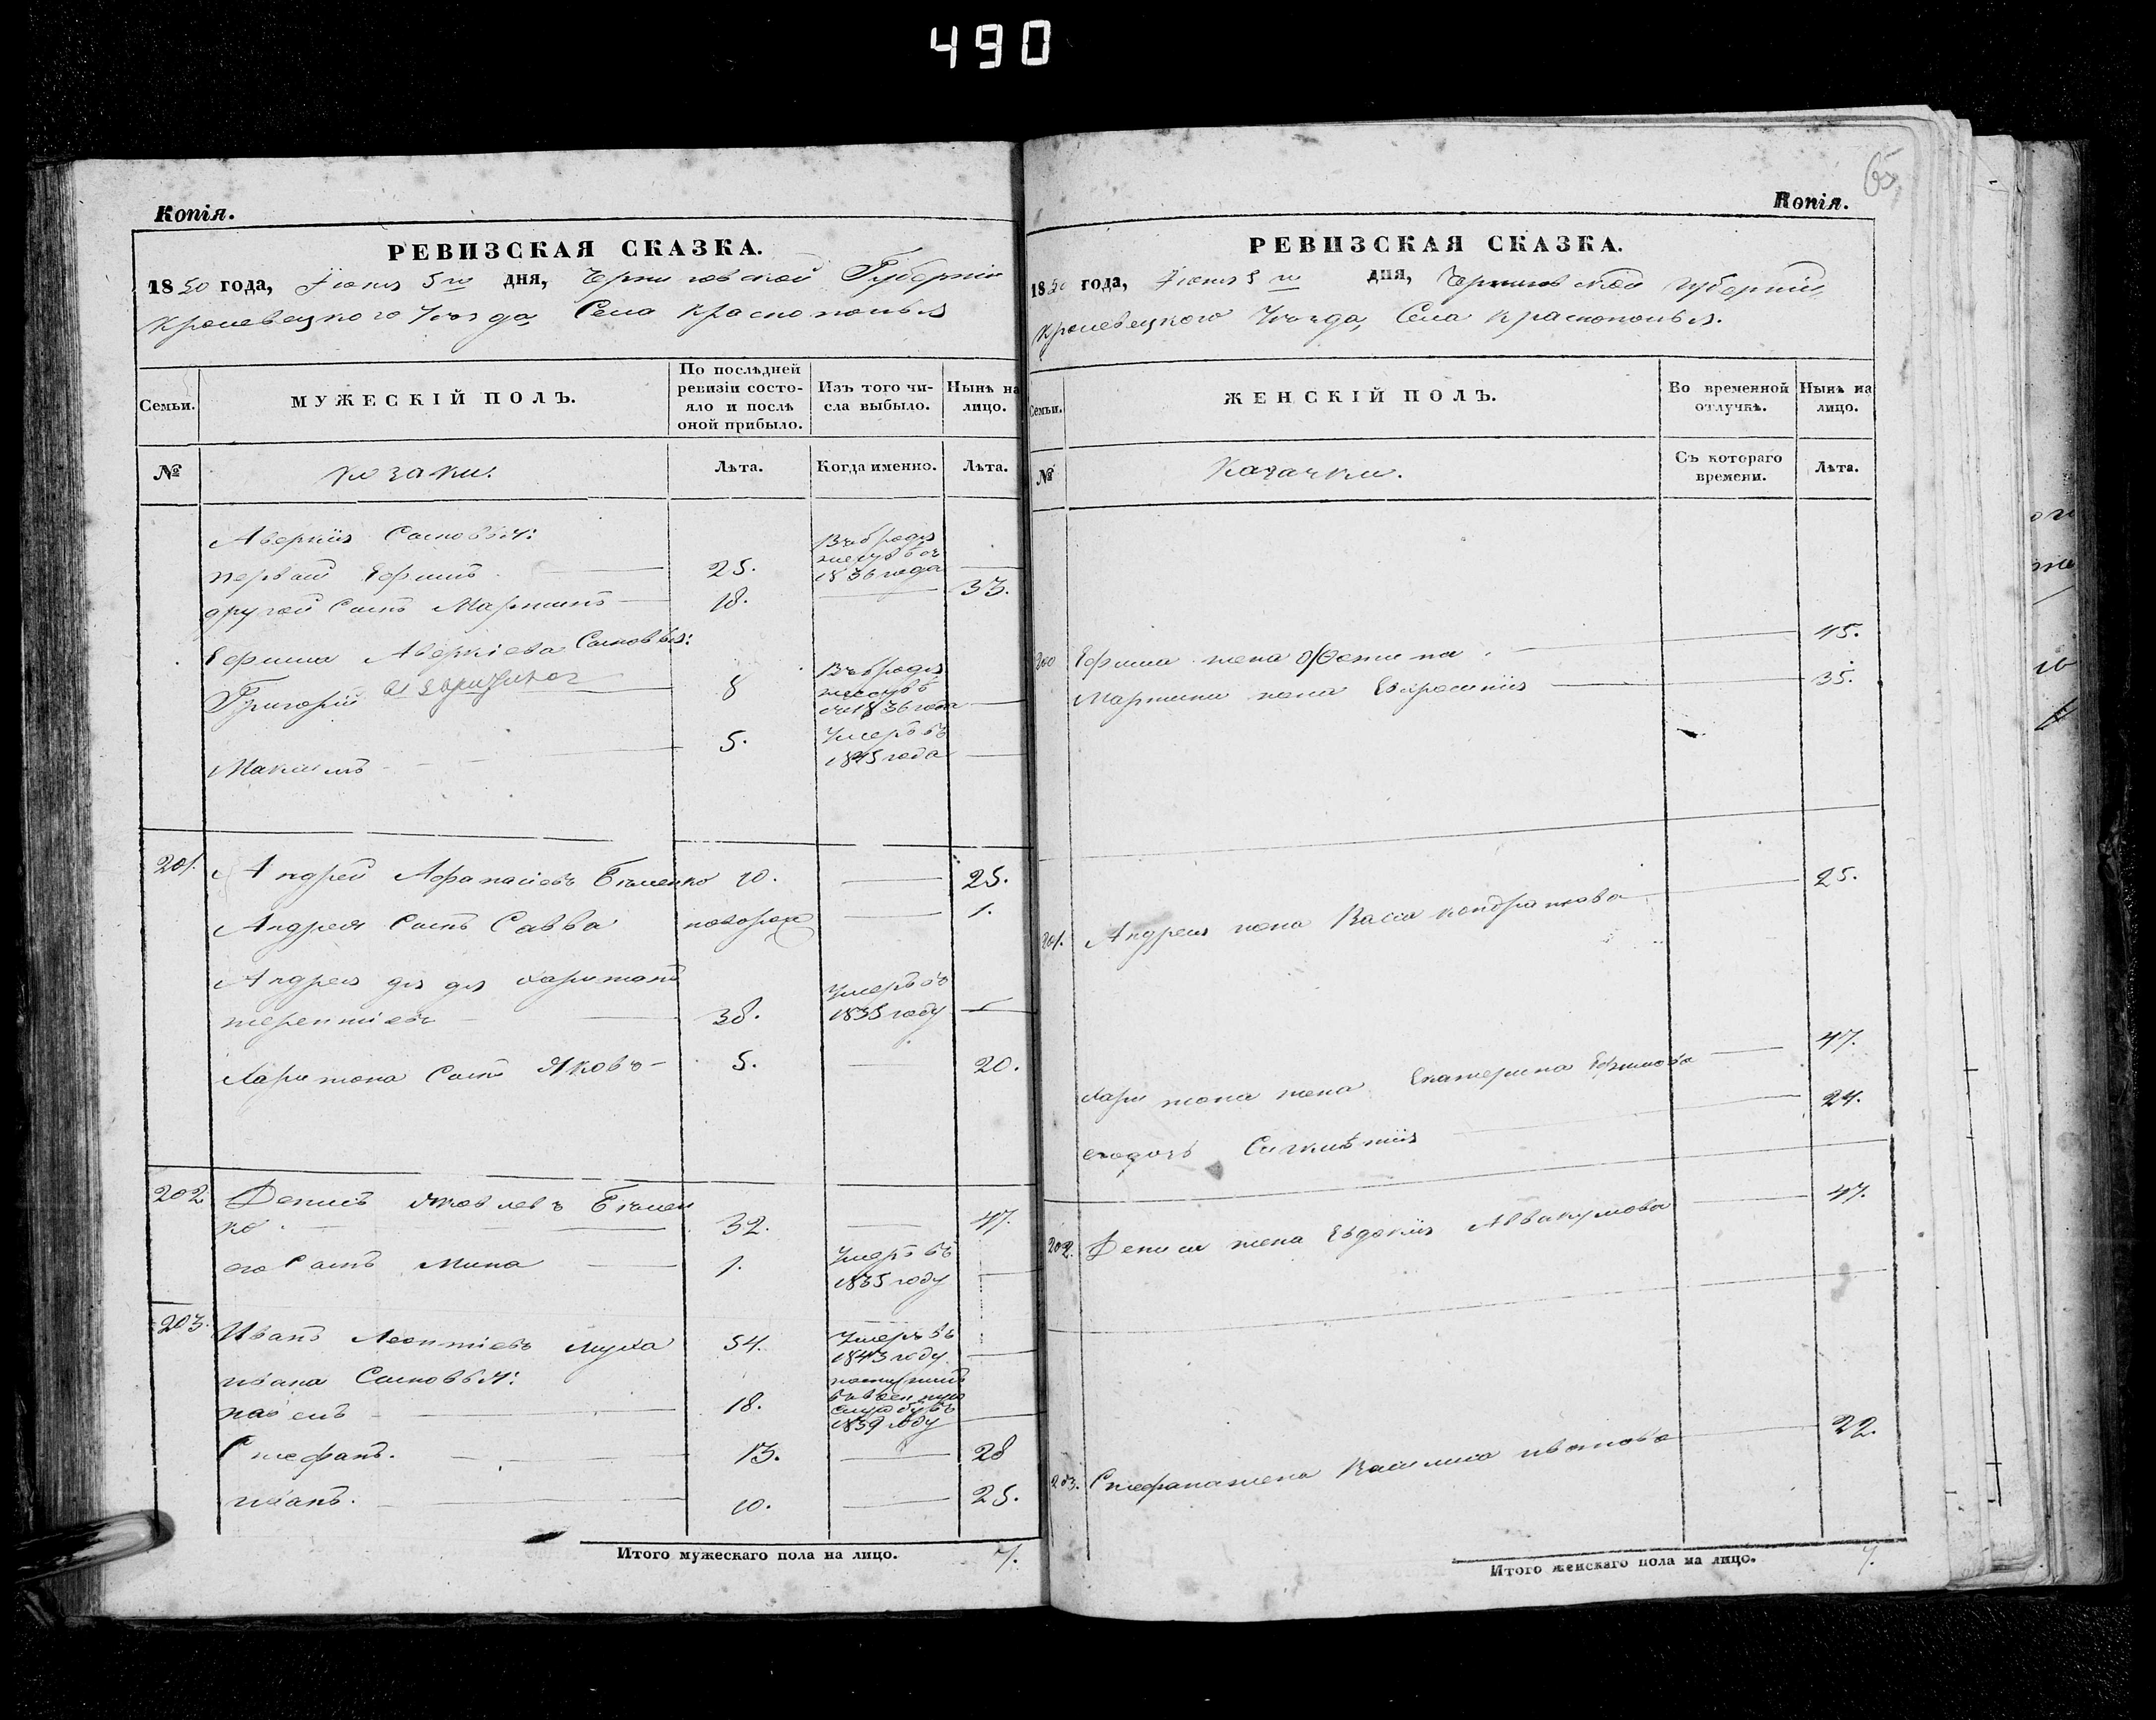 490
Копія.
РЕВИЗСКАЯ СКАЗКА.
1850 года, Іюня 5го дня, Черниговской Губерніи
Кролевецкого Уѣзда, Села Краснополья
Семьи.
МУЖЕСКІЙ ПОЛЪ.
По послѣдней
ревизіи состо-
яло и послѣ
оной прибыло.
Изъ того чи-
сла выбыло.
Нынѣ на
лицо.
№
козаки.
Лѣта.
Когда именно.
Лѣта.
Аверкія Сыновья:
первый Ефимъ 25.
Въ бродя
жествѣ съ
1836 года
другой Сынъ Мартинъ 18. 33.
Ефима Аверкіева Сыновья:
Григорій 8
Въ бродя
жествѣ
съ 1836 года
Максимъ 5.
Умеръ въ
1845 года
201. Андрей Афанасіевъ Бѣленко 10. 25.
Андрея Сынъ Савва новорож 1.
Андрея дядя Харитонъ
терентіевъ 38.
Умеръ въ
1835 году
Харитона Сынъ Яковъ 5. 20.
202. Денисъ Яковлевъ Бѣлен
ко 32. 47.
его Сынъ Мина 1.
Умеръ въ
1835 году
203. Иванъ Леонтіевъ Муха 54.
Умеръ въ
1843 году.
ивана Сыновья:
павелъ 18.
поступилъ
въ военную
службу въ
1839 году
Стефанъ. 13. 28
иванъ. 10. 25.
Итого мужескаго пола на лицо. 7.
65
Копія.
РЕВИЗСКАЯ СКАЗКА.
1850 года, Іюня 5го дня, Черниговской губерніи,
Кролевецкого Уѣзда, Села Краснополья.
Семьи.
ЖЕНСКІЙ ПОЛЪ.
Во временной
отлучкѣ.
Нынѣ на
лицо.
№
Казачки.
Съ котораго
времени.
Лѣта.
200 Ефима жена 45.
Мартина жена Евфросинія 35.
201. Андрея жена Васса кондратова 25.
Харитона жена Екатерина Ефимова 47.
егодочь Сиклѣтія 24.
202. Дениса жена Евдокія Аввакумова 47.
203. Стефана жена Василиса иванова 22.
Итого женскаго пола на лицо. 7.